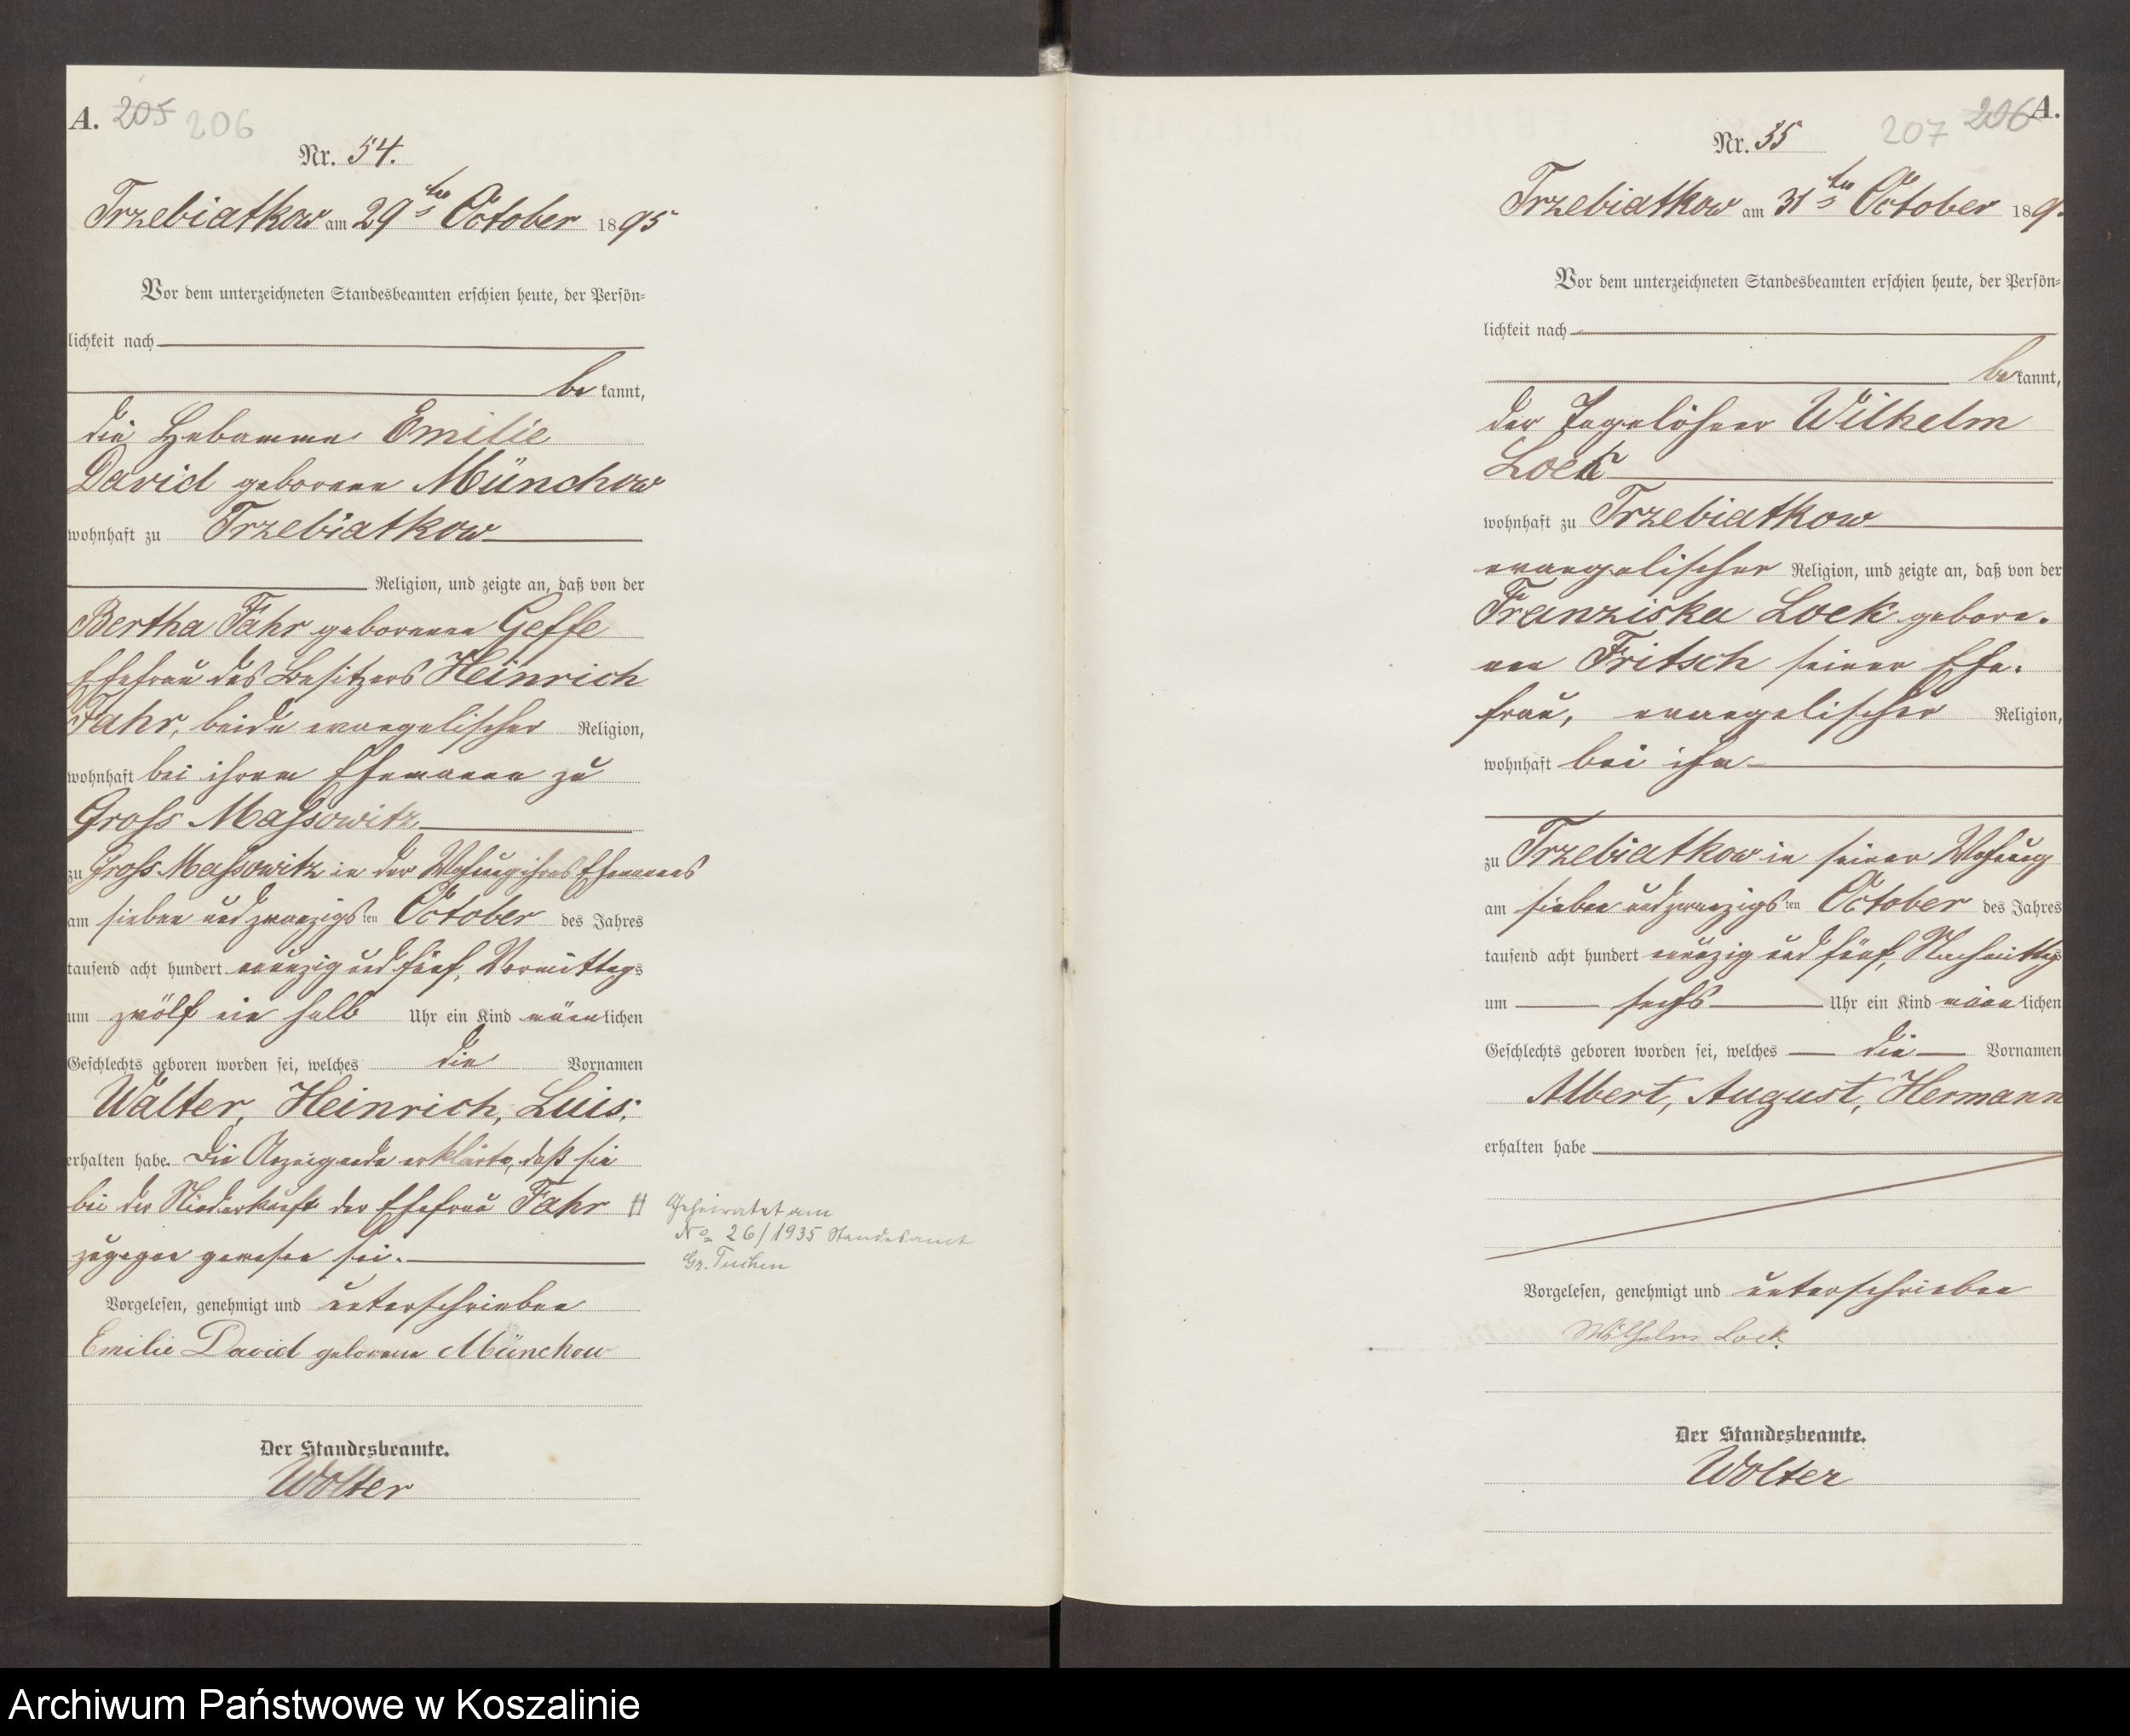 A. 205 206
Nr. 54.
Trzebiatkow am 29ten October 1895
Vor dem unterzeichneten Standesbeamten erschien heute, der Persön-
lichkeit nach
be kannt,
die Hebamme Emilie
David geborene Münchow
wohnhaft zu Trzebiatkow
Religion, und zeigte an, daß von der
Bertha Fahr geborenen Geffe
Ehefrau des Besitzers Heinrich
Fahr, beide evangelischer Religion,
wohnhaft bei ihrem Ehemanne zu
Gross Massowitz
zu Gross Massowitz in der Wohnung ihres Ehemannes
am sieben und zwanzigsten October des Jahres
tausend acht hundert neunzig und fünf, Vormittags
um zwölf ein halb Uhr ein Kind männlichen
Geschlechts geboren worden sei, welches die Vornamen
Walter, Heinrich, Luis,
erhalten habe. Die Anzeigende erklärte, daß sie
bei der Niederkunft der Ehefrau Fahr
zugegen gewesen sei.
Vorgelesen, genehmigt und unterschrieben
Emilie David geborene Münchow
Der Standesbeamte.
Wolter
Geheiratet am
No 26/1935 Standesamt
Gr. Tuchen
207 206 A.
Nr. 55
Trzebiatkow am 31ten October 189
Vor dem unterzeichneten Standesbeamten erschien heute, der Persön-
lichkeit nach
be kannt,
der Tagelöhner Wilhelm
Loek
wohnhaft zu Trzebiatkow
evangelischer Religion, und zeigte an, daß von der
Franziska Loek gebore.
nen Fritsch seiner Ehe.
frau, evangelischer Religion,
wohnhaft bei ihm
zu Trzebiatkow in seiner Wohnung
am sieben und zwanzigsten October des Jahres
tausend acht hundert neunzig und fünf, Nachmittags
um sechs Uhr ein Kind männlichen
Geschlechts geboren worden sei, welches die Vornamen
Albert, August, Hermann
erhalten habe
Vorgelesen, genehmigt und unterschrieben
Wilhelm Loek
Der Standesbeamte.
Wolter
Archiwum Państwowe w Koszalinie